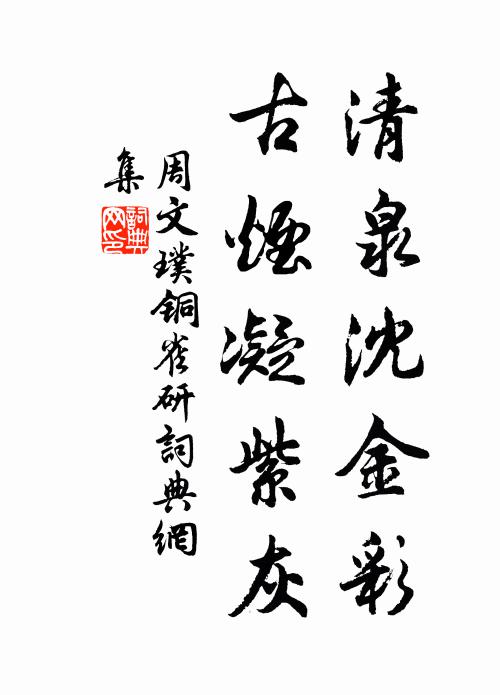 清泉沈金彩
古煙凝紫灰
周文璞銅雀研詞典網
集
詞典網印